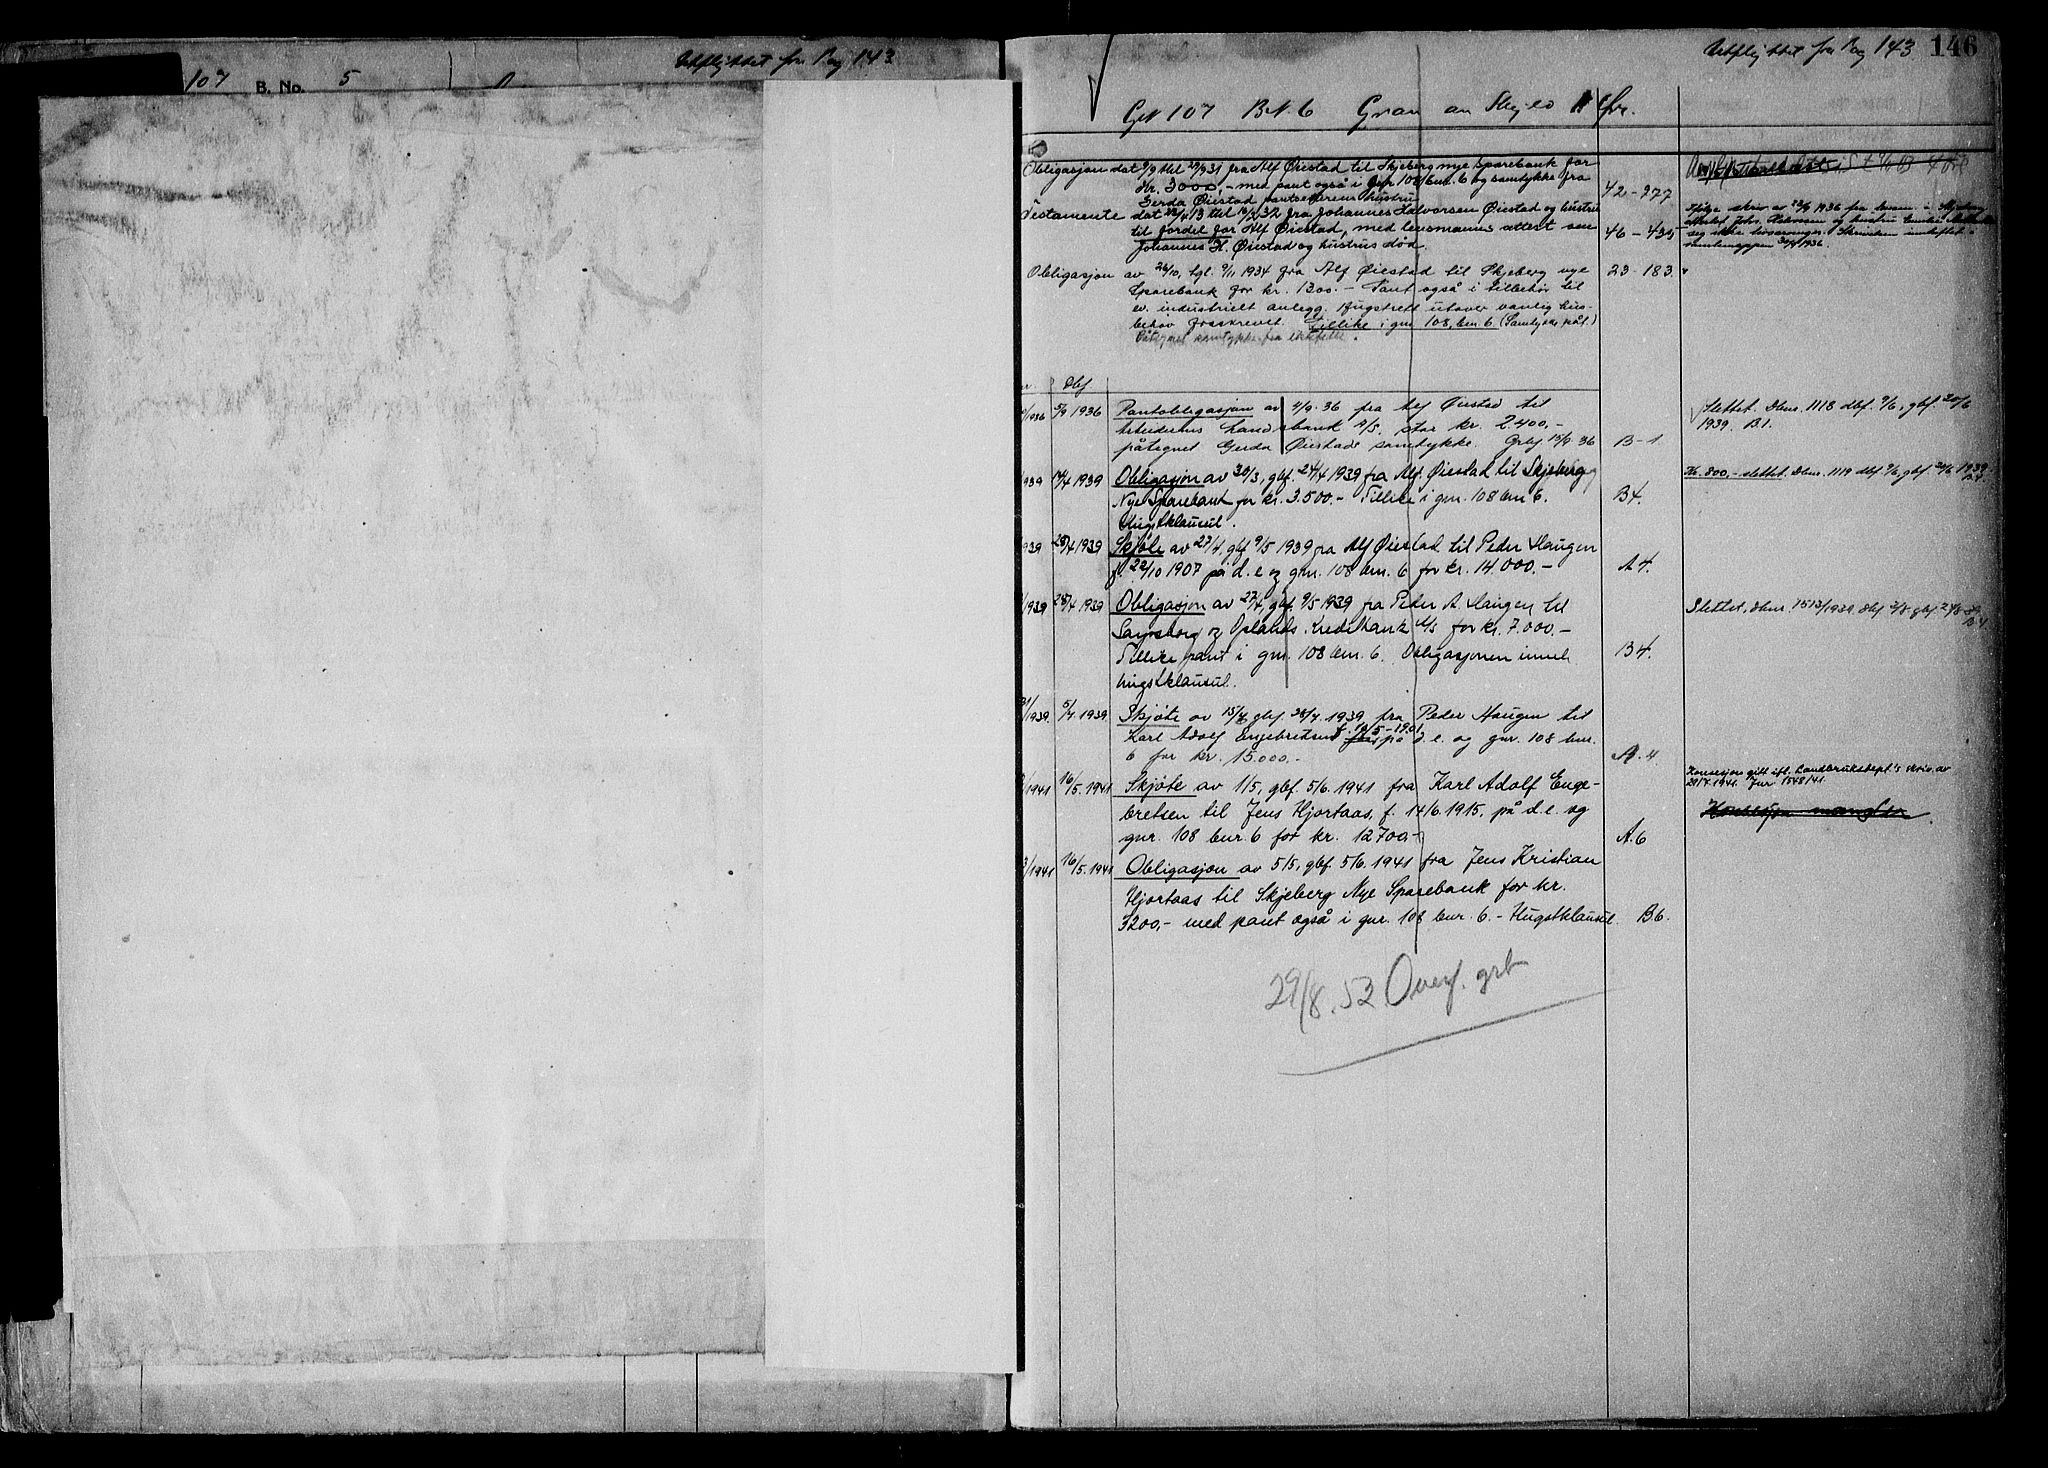 Utflyttet fra Pag 143
107 B. No. 5
Utflyttet fra Pag 143 146
Gn 107 Bn. 6 Gran av Skyld Øre.
Obligasjon dat 9/9 thl 29/9 31 fra Alf Øiestad til Skjeberg nye Sparebank for
kr. 3000,- med pant også i gnr 108 bnr. 6 og samtykke fra
Gerda Øiestad pantseterens hustru 42-977
Testamente dat til fra Johannes Halvorsen Øiestad og hustru
til fordel for Alf Øiestad, med lensmannens attest om 46-435
Johannes H. Øiestad og hustrus død.
Ifølge skriv av 1936 fra
1936.
Obligasjon av 26/10, tgl. 9/11 1934 fra Alf Øiestad til Skjeberg nye 23-183
Sparebank for kr. 1300.- Pant også i tilbehør til
ev. industrielt anlegg. Hugstrett utover vanlig hus-
behov fraskrevet. Tillike i gnr 108, bnr. 6 (Samtykke påt.)
Påtegnet samtykke fra ektefelle.
Dbf
/1936 5/9 1936 Pantobligasjon av 4/9.36 fra Alf Øiestad til
Arbeidernes Landsbank A/S, stor kr. 2.400,-
påtegnet Gerda Øiestads samtykke. Grbf 15/9 36 B-1
Slettet. Dbnr. 1118 dbf. 9/6, gbf. 20/6
1939. B.1.
1939 14/4 1939 Obligasjon av 30/3, gbf. 24/4 1939 fra Alf. Øiestad til Skjeberg
Nye Sparebank for kr. 3.500.- Tillike i gnr. 108 bnr 6. B4.
Hugstklausul.
Kr. 800,- slettet. Dbnr. 1119 dbf 9/6, gbf. 20/6 1939
B.4
1939 28/4 1939 Skjøte av 27/4, gbf 9/5 1939 fra Alf Øiestad til Peder Haugen
f. 22/10 1907 på d. e og gnr. 108 bnr. 6 for kr. 14.000.- A4.
/1939 28/4 1939 Obligasjon av 27/4, gbf. 9/5 1939 fra Peder A. Haugen til
Sarpsborg og Oplands Kreditbank A/S for kr. 7.000.-
Tillike pant i gnr. 108 bnr. 6. Obligasjonen inneh. B4.
hugstklausul.
Slettet. Dbnr. 1513/1939 dbf 2/8 gbf 24/8 39
B.4
/1939. 5/7. 1939 Skjøte av 15/6 gbf. 28/7. 1939 fra Peder Haugen til
Karl Adolf Engebretsen f. 10/5-1901 på d. e. og gnr. 108 bnr.
6 for kr. 15.000.- A. 4
/1941 16/5. 1941 Skjøte av 1/5, gbf. 5/6. 1941 fra Karl Adolf Enge-
bretsen til Jens Hjortaas, f. 14/6. 1915, på d. e. og
gnr. 108 bnr. 6 for kr. 12700,- A.6
Konsesjon gitt ifl. Landbruksdept.'s skriv av
29/7. 1941. Jnr 1548/41.
Konsesjon mangler
3/1941 16/5. 1941 Obligasjon av 5/5, gbf. 5/6. 1941 fra Jens Kristian
Hjortaas til Skjeberg Nye Sparebank for kr.
3200,- med pant også i gnr. 108 bnr. 6. - Hugstklausul. B6.
29/8. 52 Overf. grb